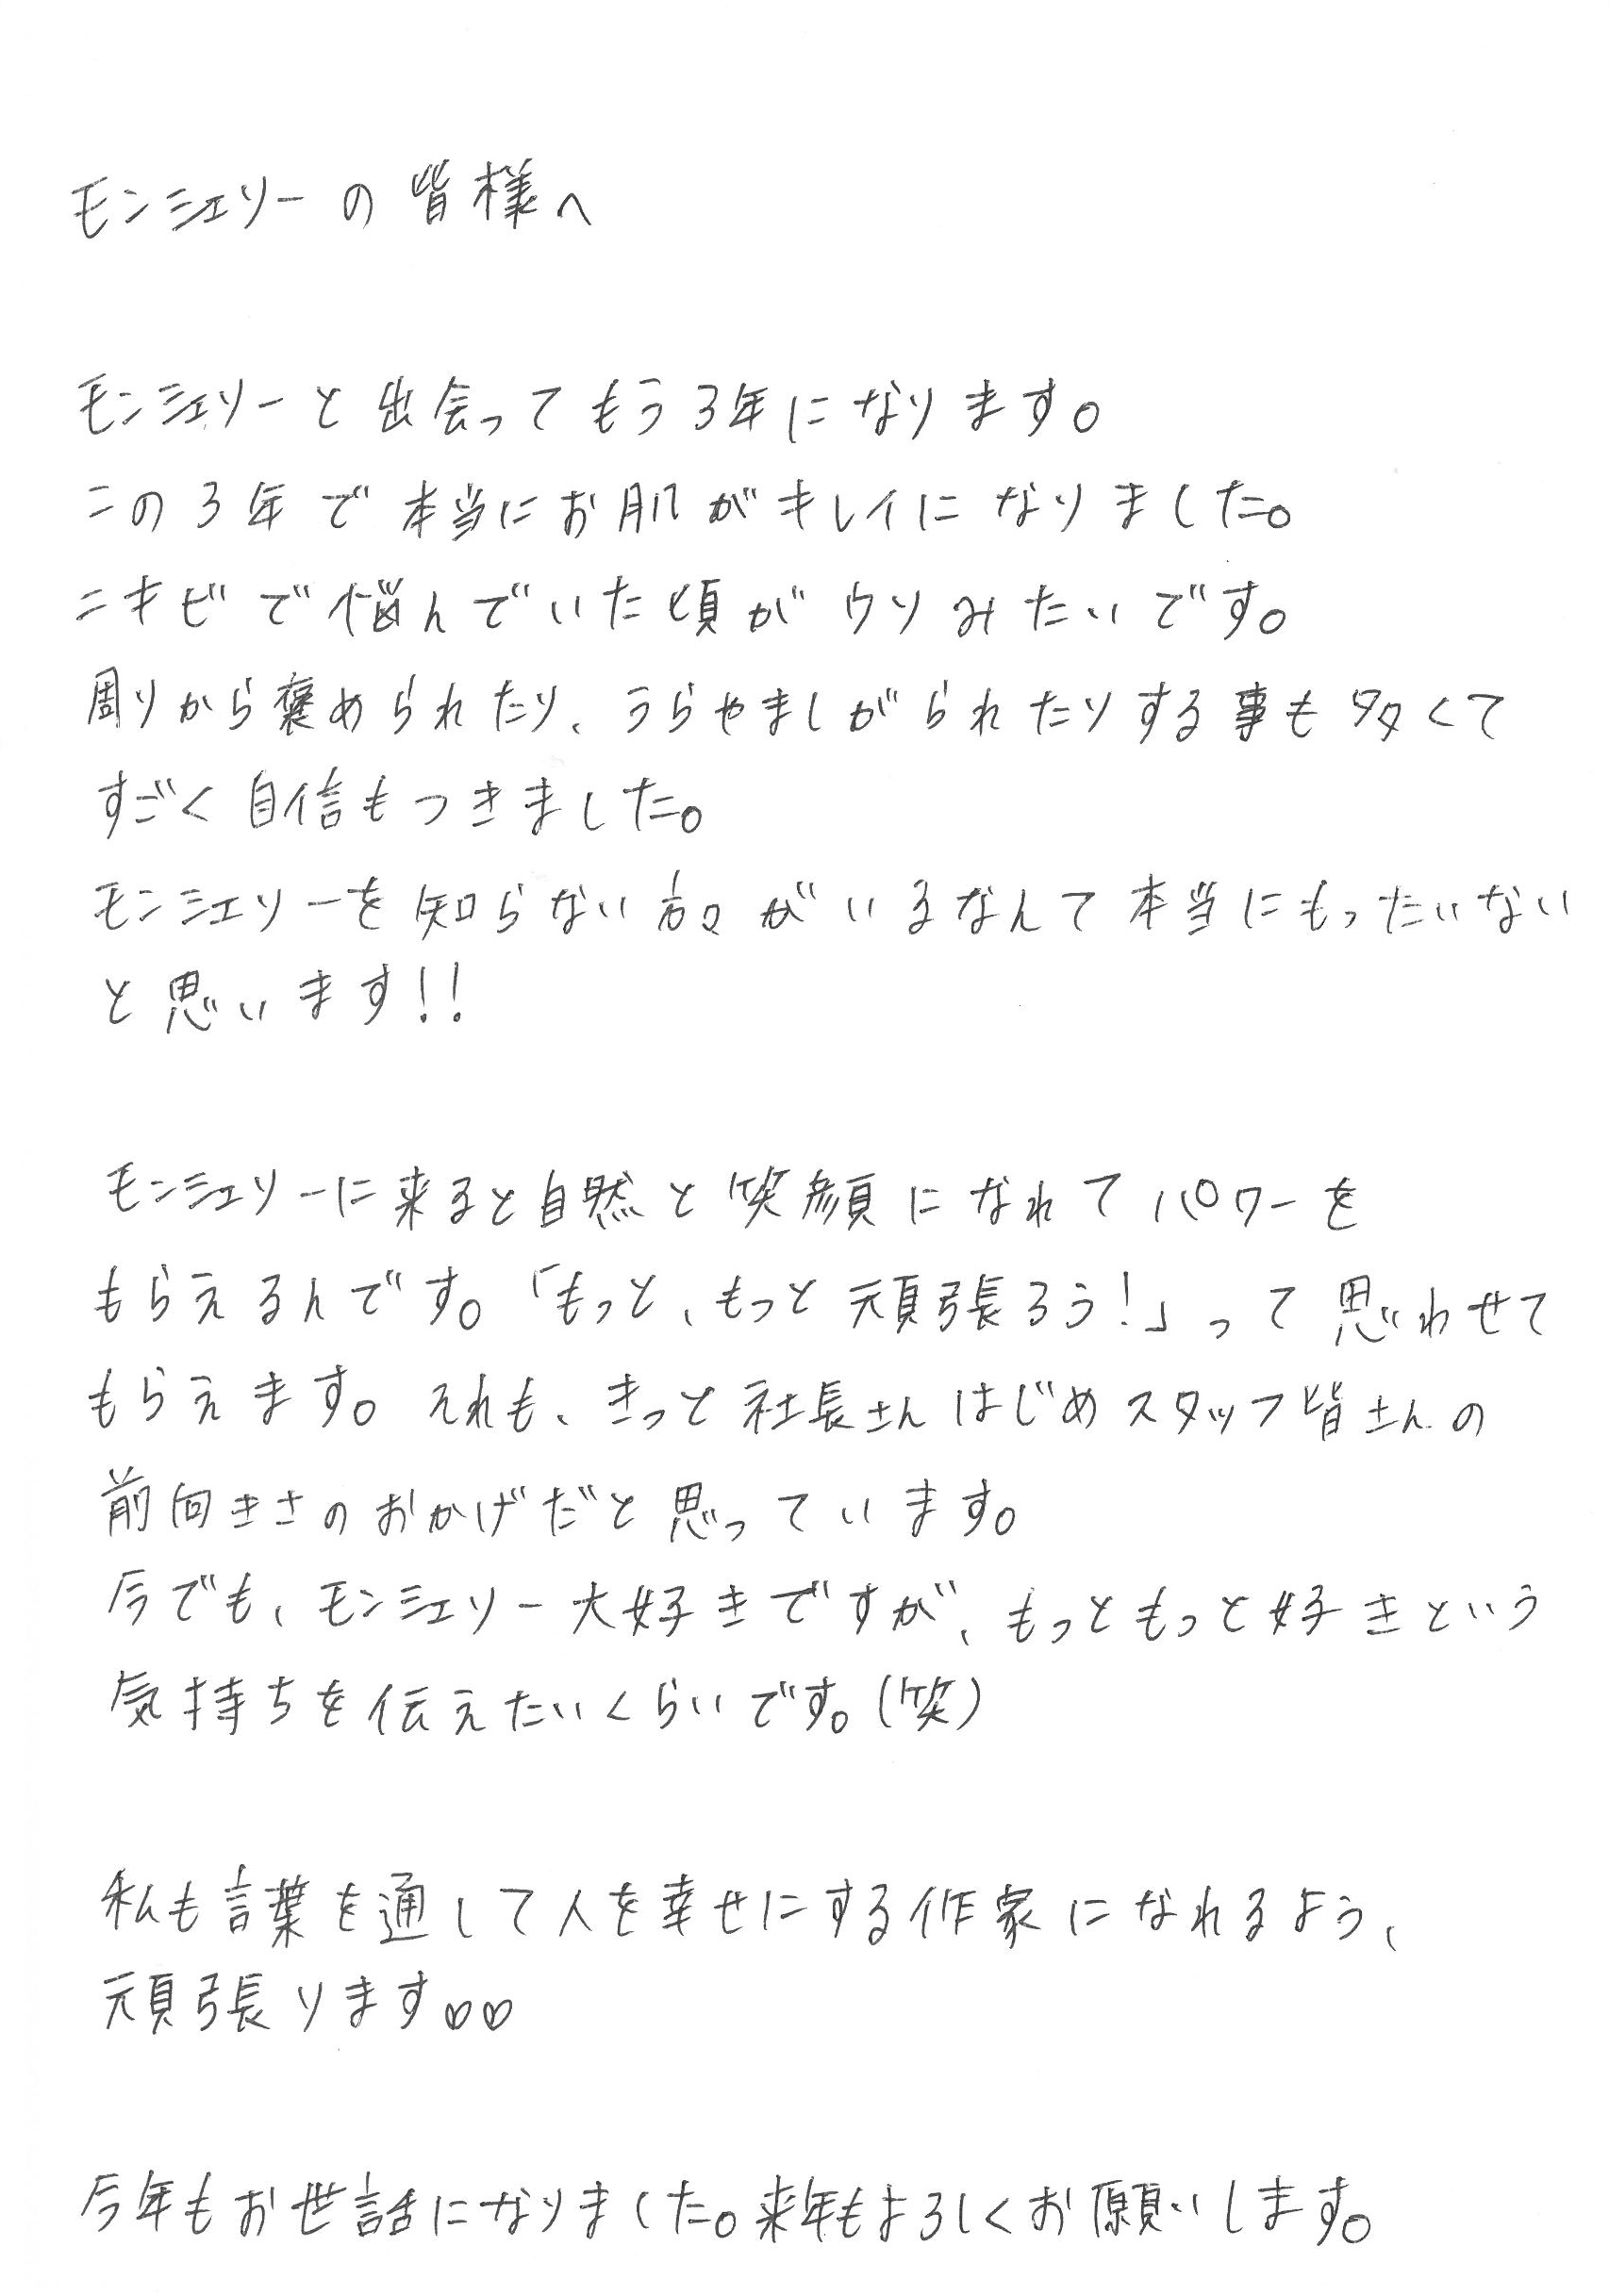 モンシェリーの皆様へ
モンシェリーと出会ってもう3年になります。
この3年で本当にお肌がキレイになりました。
ニキビで悩んでいた頃がウソみたいです。
周りから褒められたり、うらやましがられたりする事も多くて
すごく自信もつきました。
モンシェリーを知らない方々がいるなんて本当にもったいない
と思います!!
モンシェリーに来ると自然と笑顔になれてパワーを
もらえるんです。「もっと、もっと頑張ろう!」って思わせて
もらえます。それも、きっと社長さんはじめスタッフ皆さんの
前向きさのおかげだと思っています。
今でも、モンシェリー大好きですが、もっともっと好きという
気持ちを伝えたいくらいです。(笑)
私も言葉を通して人を幸せにする作家になれるよう、
頑張ります♡♡
今年もお世話になりました。来年もよろしくお願いします。